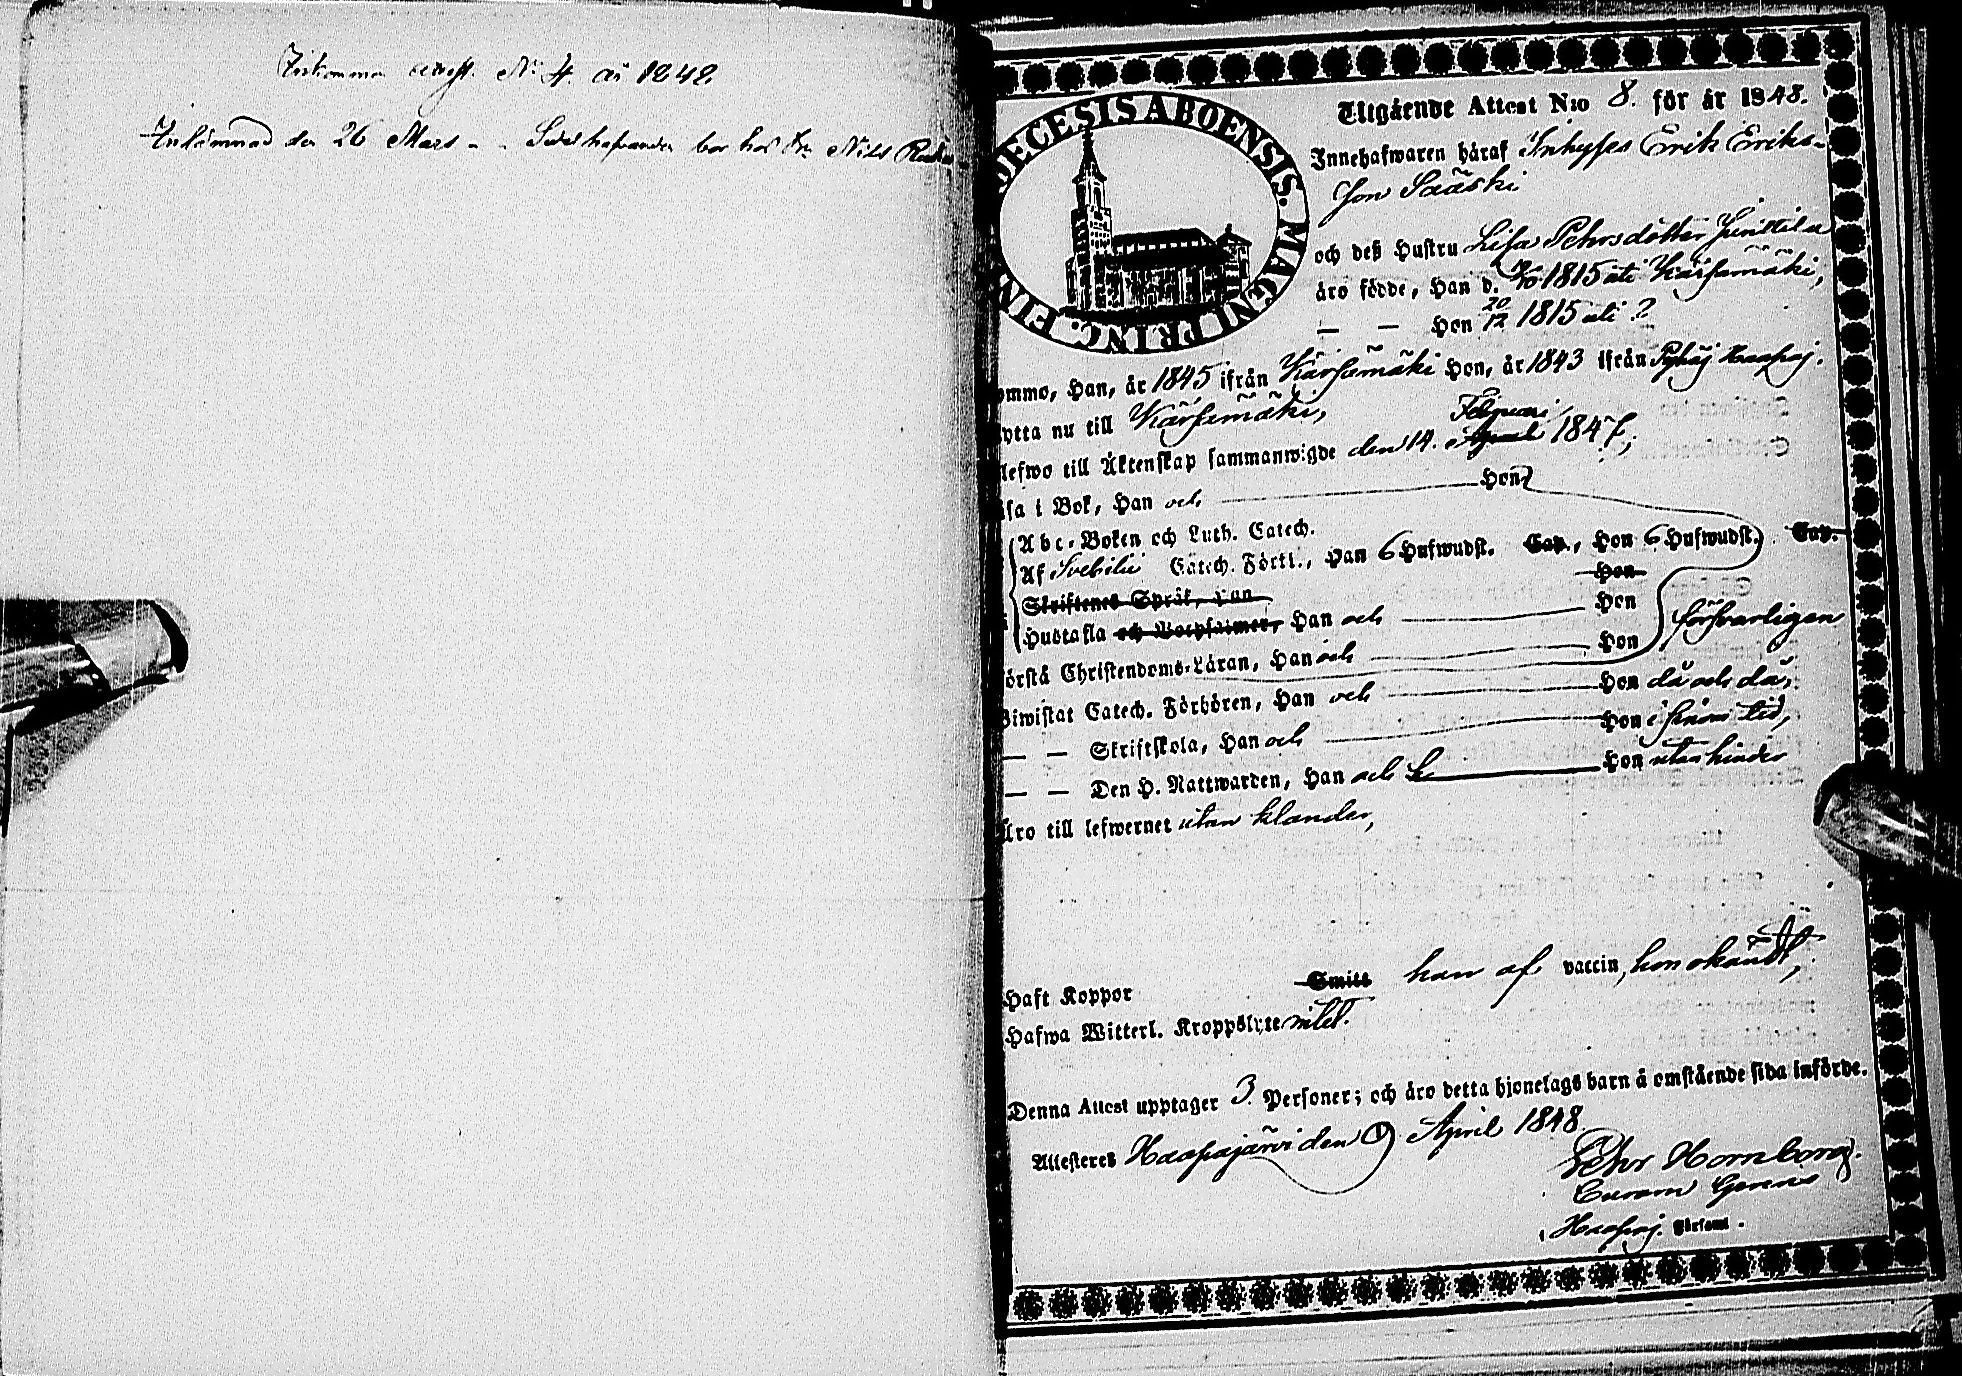 Inkommen attest. No 4. år 1848.
Inlämnad den 26 Mars - - bor hos Nils
DIOECESIS ABOENSIS. MAGNI PRINC. FIN
Utgående Attest N:o 8. för år 1848.
Innehafwaren häraf Inhyses Erik Eriks-
son Sääski
och deß Hustru Lisa Pehrsdotter Junttila
äro födde, Han d. 1815 uti Kärsämäki,
— — Hon 20/12 1815 uti ?
ommo, Han, år 1845 ifrån Kärsämäki Hon, år 1843 ifrån Pyhäj Haapaj.
ytta nu till Kärsämäki,
Februari
lefwo till Äktenskap sammanwigde den 14. April 1847,
äsa i Bok, Han och Hon
Abc-Boken och Luth. Catech.
Af Svebilii Catech. Förkl., Han 6 Hufwudst. Cap., Hon 6 Hufwudst. Cap.
Skriftenes Språk, Han Hon
Hustafla och Botpsalmer, Han och Hon försvarligen
örstå Christendoms-Läran, Han och Hon
Biwistat Catech. Förhören, Han och Hon då och då,
— — Skriftskola, Han och Hon i sinom tid,
— — Den H. Nattwarden, Han och Hon utan hinder
Äro till lefwernet utan klander,
Haft Koppor Smitt han af vaccin, hon okändt,
Hafwa Witterl. Kroppslyte intet.
Denna Attest upptager 3. Personer; och äro detta hjonelags barn å omstående sida införde.
Attesteres Haapajärvi den 9 April 1848
Pehr Hornborg.
Curam Gerens
Haapaj. Församl.